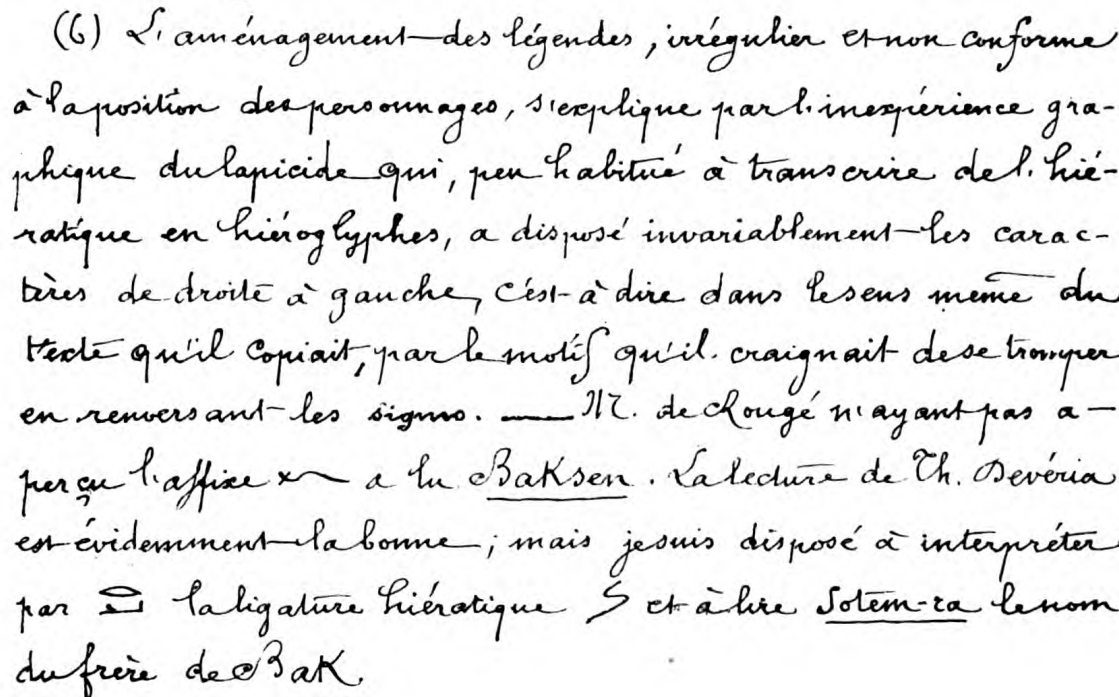 (6) L'aménagement des légendes, irrégulier et non conforme
à la position des personnages, s'explique par l'inexpérience gra-
phique du lapicide qui, peu habitué à transcrire de l'hié-
ratique en hiéroglyphes, a disposé invariablement les carac-
tères de droite à gauche, c'est-à dire dans le sens même du
texte qu'il copiait, par le motif qu'il craignait de se tromper
en renversant les signes. — M. de Rougé n'ayant pas a-
perçu l'affixe a lu Baksen. La lecture de Th. Devéria
est évidemment la bonne; mais je suis disposé à interpréter
par la ligature hiératique et à lire Sotem-ra le nom
du frère de Bak.